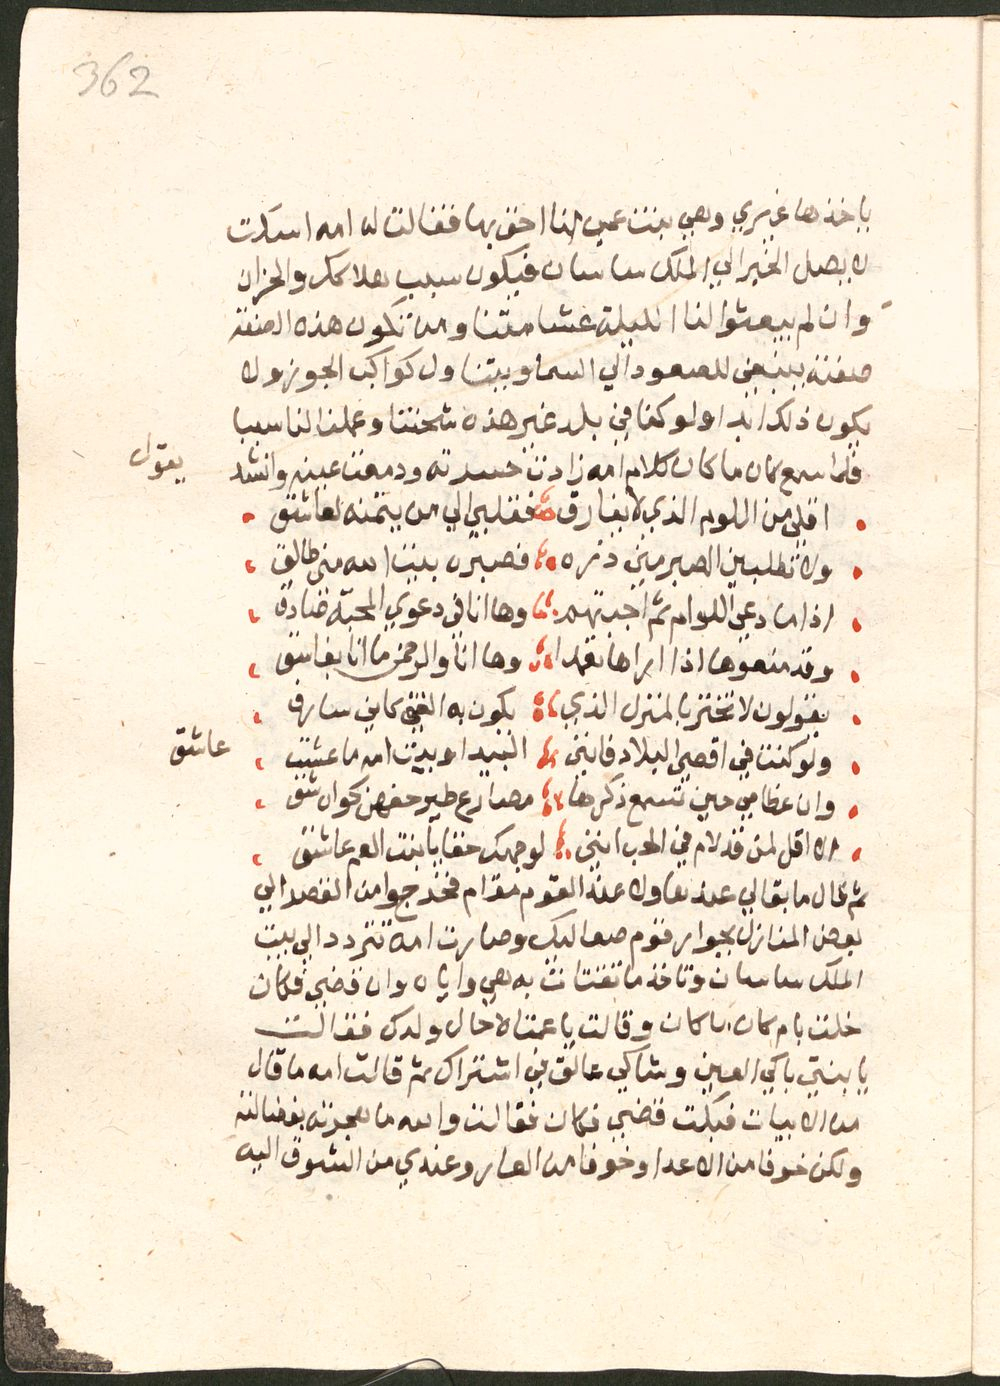 362
ياخذها غيري وهي بنت عمي انا احق بها فقالت له امه اسكت
لا يصل الخبر الي الملك ساسان فيكون سبب هلاكك والحزان
وان لم يبعثوا لنا الليلة عشا متنا ومن تكون هذه الصنعة
صفته ينبغي للصعود الي السما ويتناول كواكب الجوز ولا
يكون ذلك ابدا ولو كنا في بلد غير هذه شحتنا وعملنا لنا سببا
فلما سمع كان ما كان كلام امه زادت حسرته ودمعت عينه وانشد
يقول
اقلي من اللوم الذي لا يفارق فقلبي الي من يتمنه لعاشق
ولا تطلبين الصبر مني ذره فصبره بنت الله مني طالق
اذا ما دعي اللوام ثم اجبتهم وها انا في دعوي المحبة صادق
وقد منعوها اذا اراها تعمدا وها انا والرحمن ما انا بفاسق
يقولون لا تختر بالمنزل الذي يكون به الفتي كاني سارق
ولو كنت في اقصي البلاد فانني
عاشق
وان عظامي حين تسمع ذكرها
الا قل لمن قد لام في الحب انني لوجهك حقا يا بنت العم عاشق
ثم قال ما بقا لي عند هاولا القوم مقام فخرجوا من القصر الي
بعض المنازل بجوار قوم صعاليك وصارت امه تتردد الي بيت
الملك ساسان وتاخذ ما تقتات به هي واياه وان قضي فكان
خلت بام كان ما كان وقالت يا عمتا لا حال ولدك فقالت
يا بنتي باكي العين وشاكي عالق في اشتراك ثم قالت امه ما قال
من الابيات فبكت قضي فكان فقالت والله ما هجرته بغضا له
ولكن خوفا من الاعدا وخوفا من العار وعندي من الشوق اليه